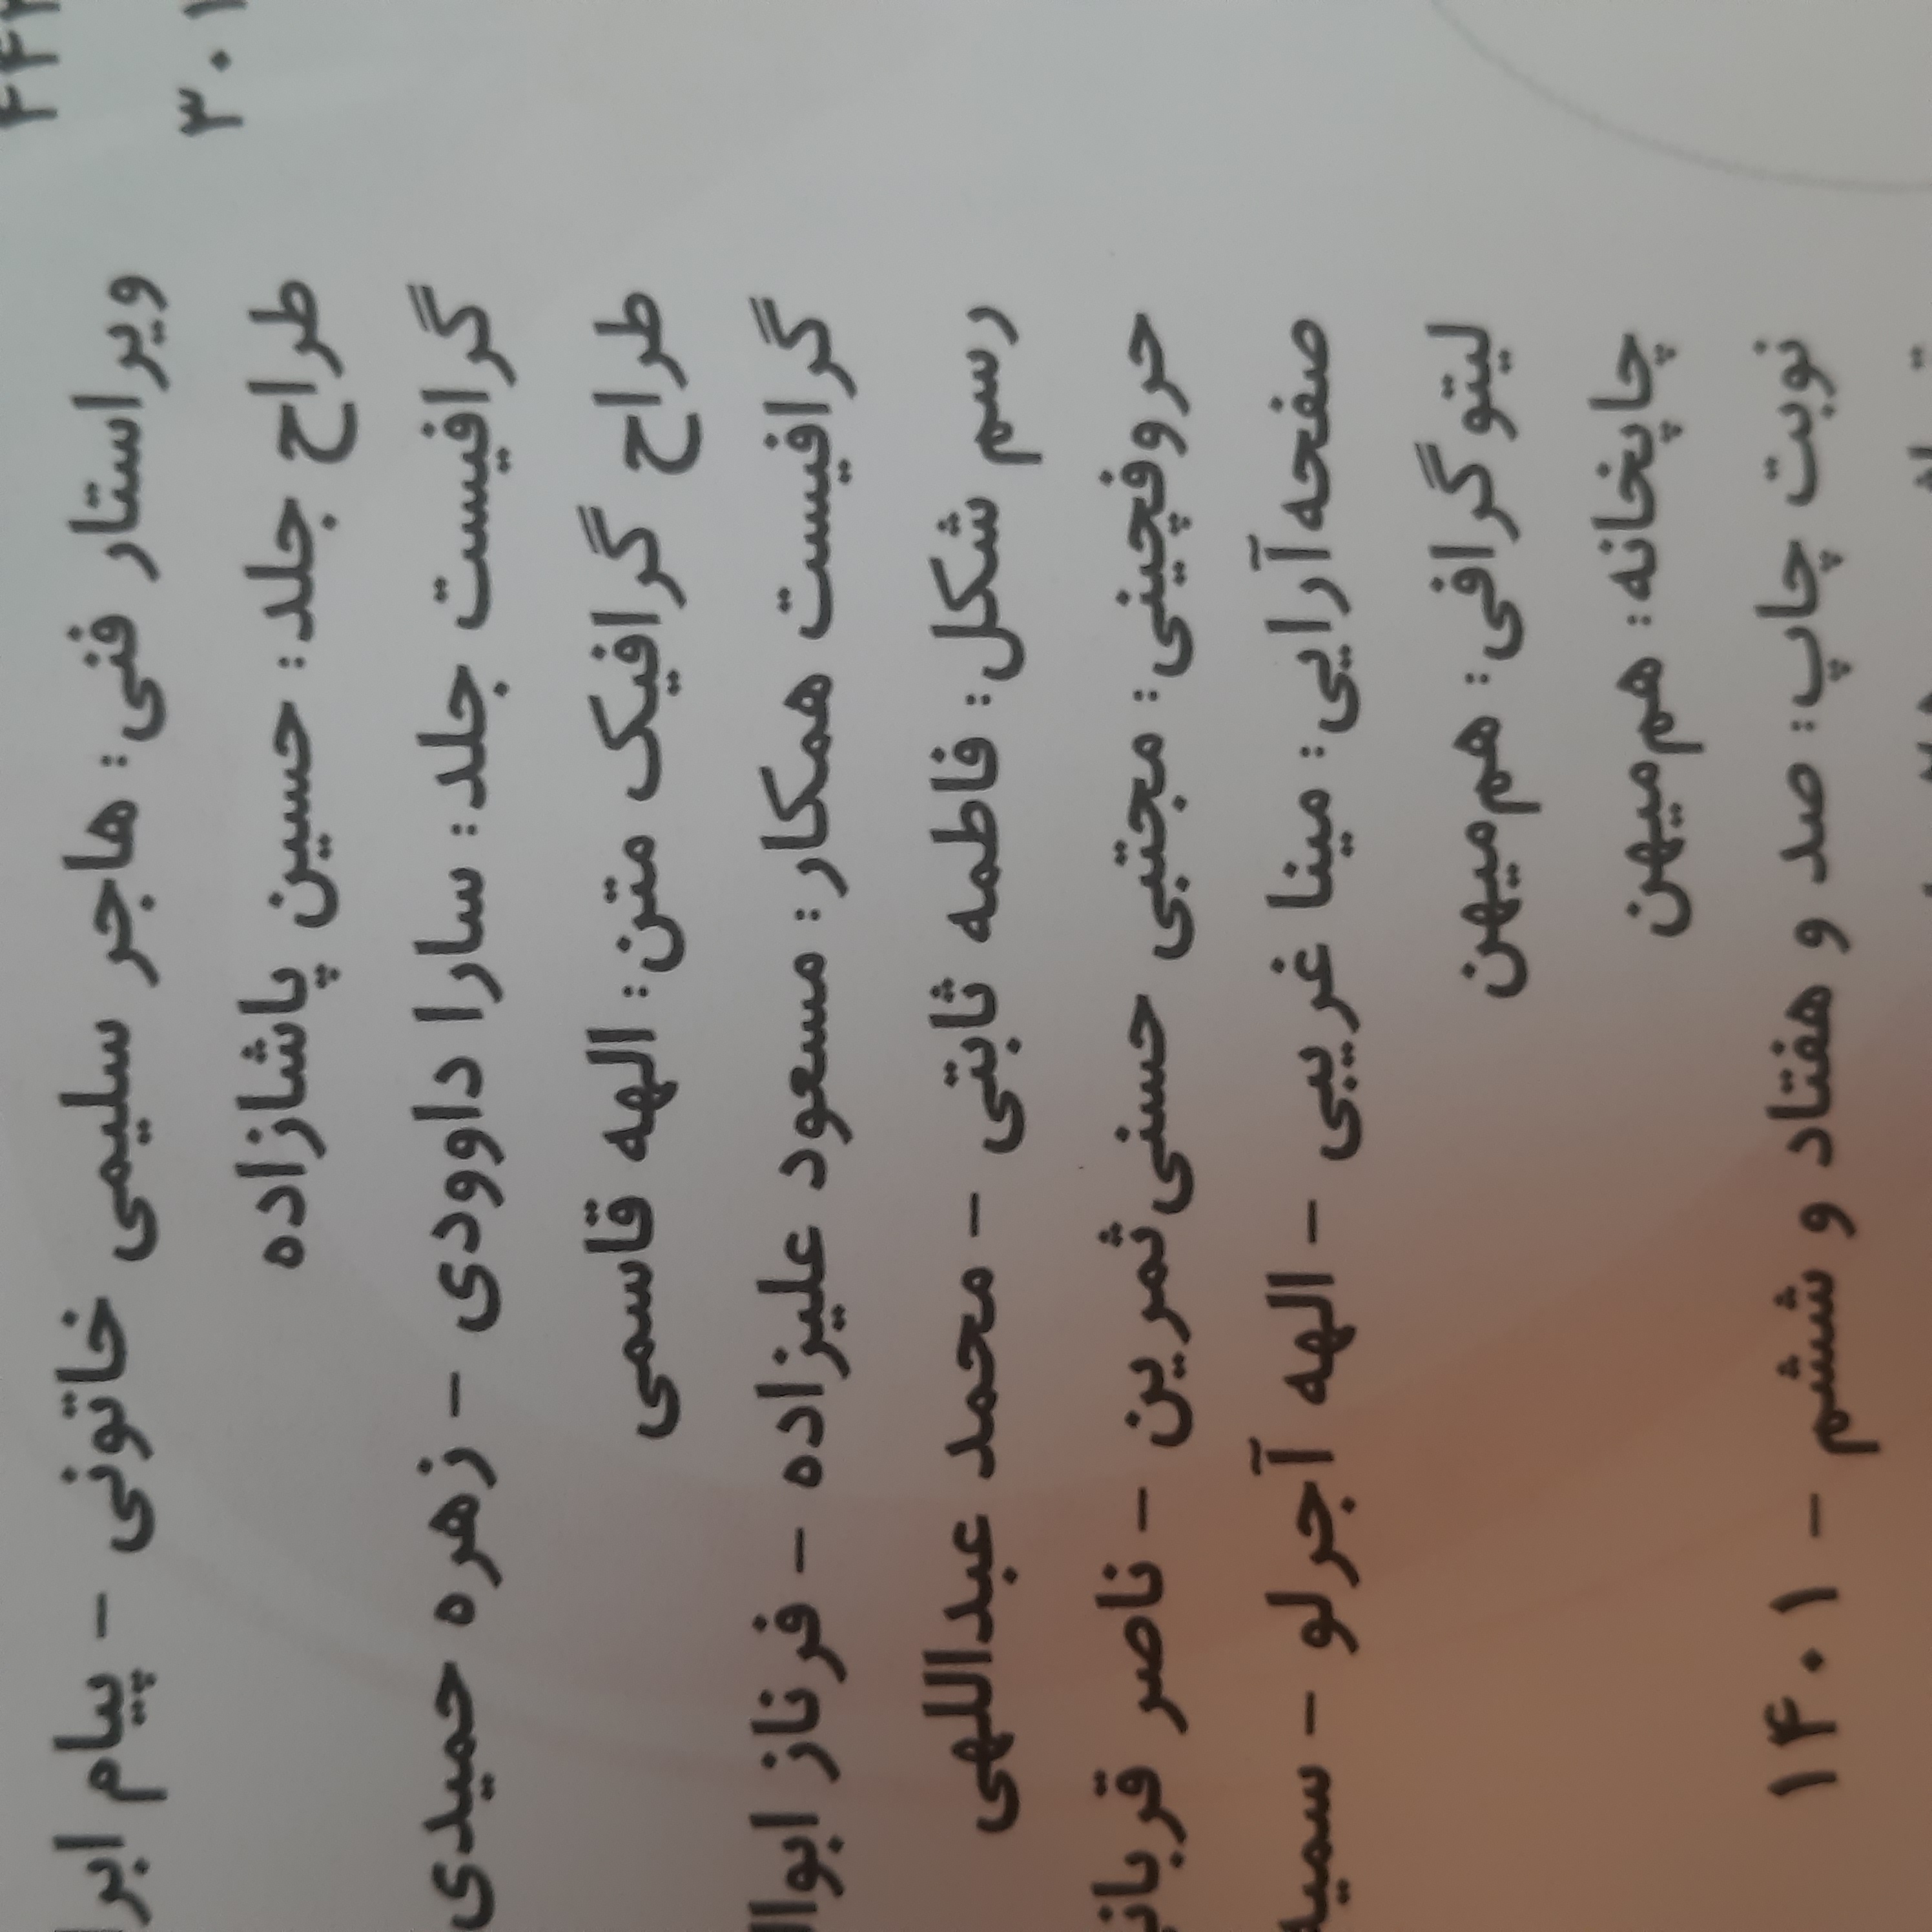 ۳۰۱
ویراستار فنی: هاجر سلیمی خاتونی - پیام
طراح جلد: حسین پاشازاده
گرافیست جلد: سارا داوودی - زهره حمیدی
طراح گرافیک متن: الهه قاسمی
گرافیست همکار: مسعود علیزاده - فرناز
رسم شکل: فاطمه ثابتی - محمد عبداللهی
حروفچینی: مجتبی حسنی‌ثمرین - ناصر
صفحه‌آرایی: مینا غریبی - الهه آجرلو -
لیتوگرافی: هم‌میهن
چاپخانه: هم‌میهن
نوبت چاپ: صد و هفتاد و ششم - ۱۴۰۱